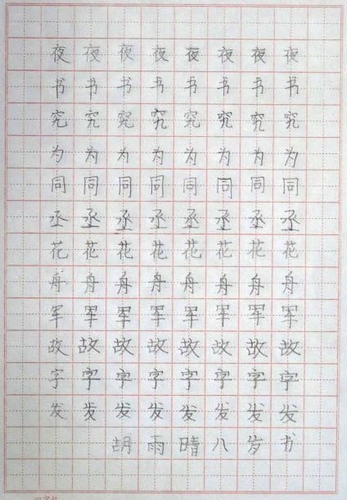 夜夜夜夜夜夜夜夜
书书书书书书书书
究究究究究究究究
为为为为为为为为
同同同同同同同同
丞丞丞丞丞丞丞丞
花花花花花花花花
舟舟舟舟舟舟舟舟
军军军军军军军军
故故故故故故故故
字字字字字字字字
发发发发发发发发
胡雨晴八岁书